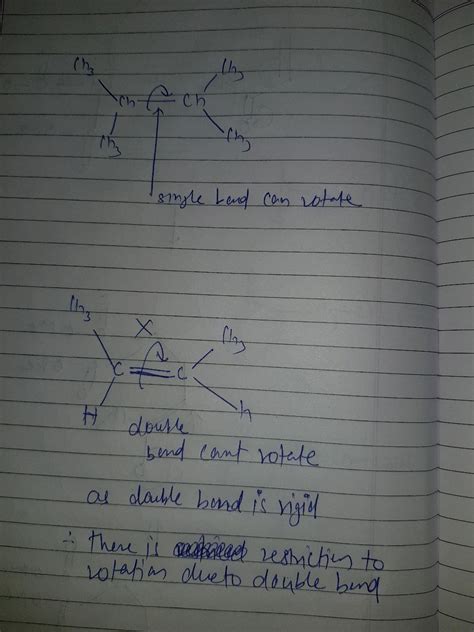 CH3 CH3
CH CH
CH3 CH3
single bond can rotate
CH3 X CH3
C = C
H h
double
bond cant rotate
as double bond is rigid
∴ there is restriction to
rotation due to double bond